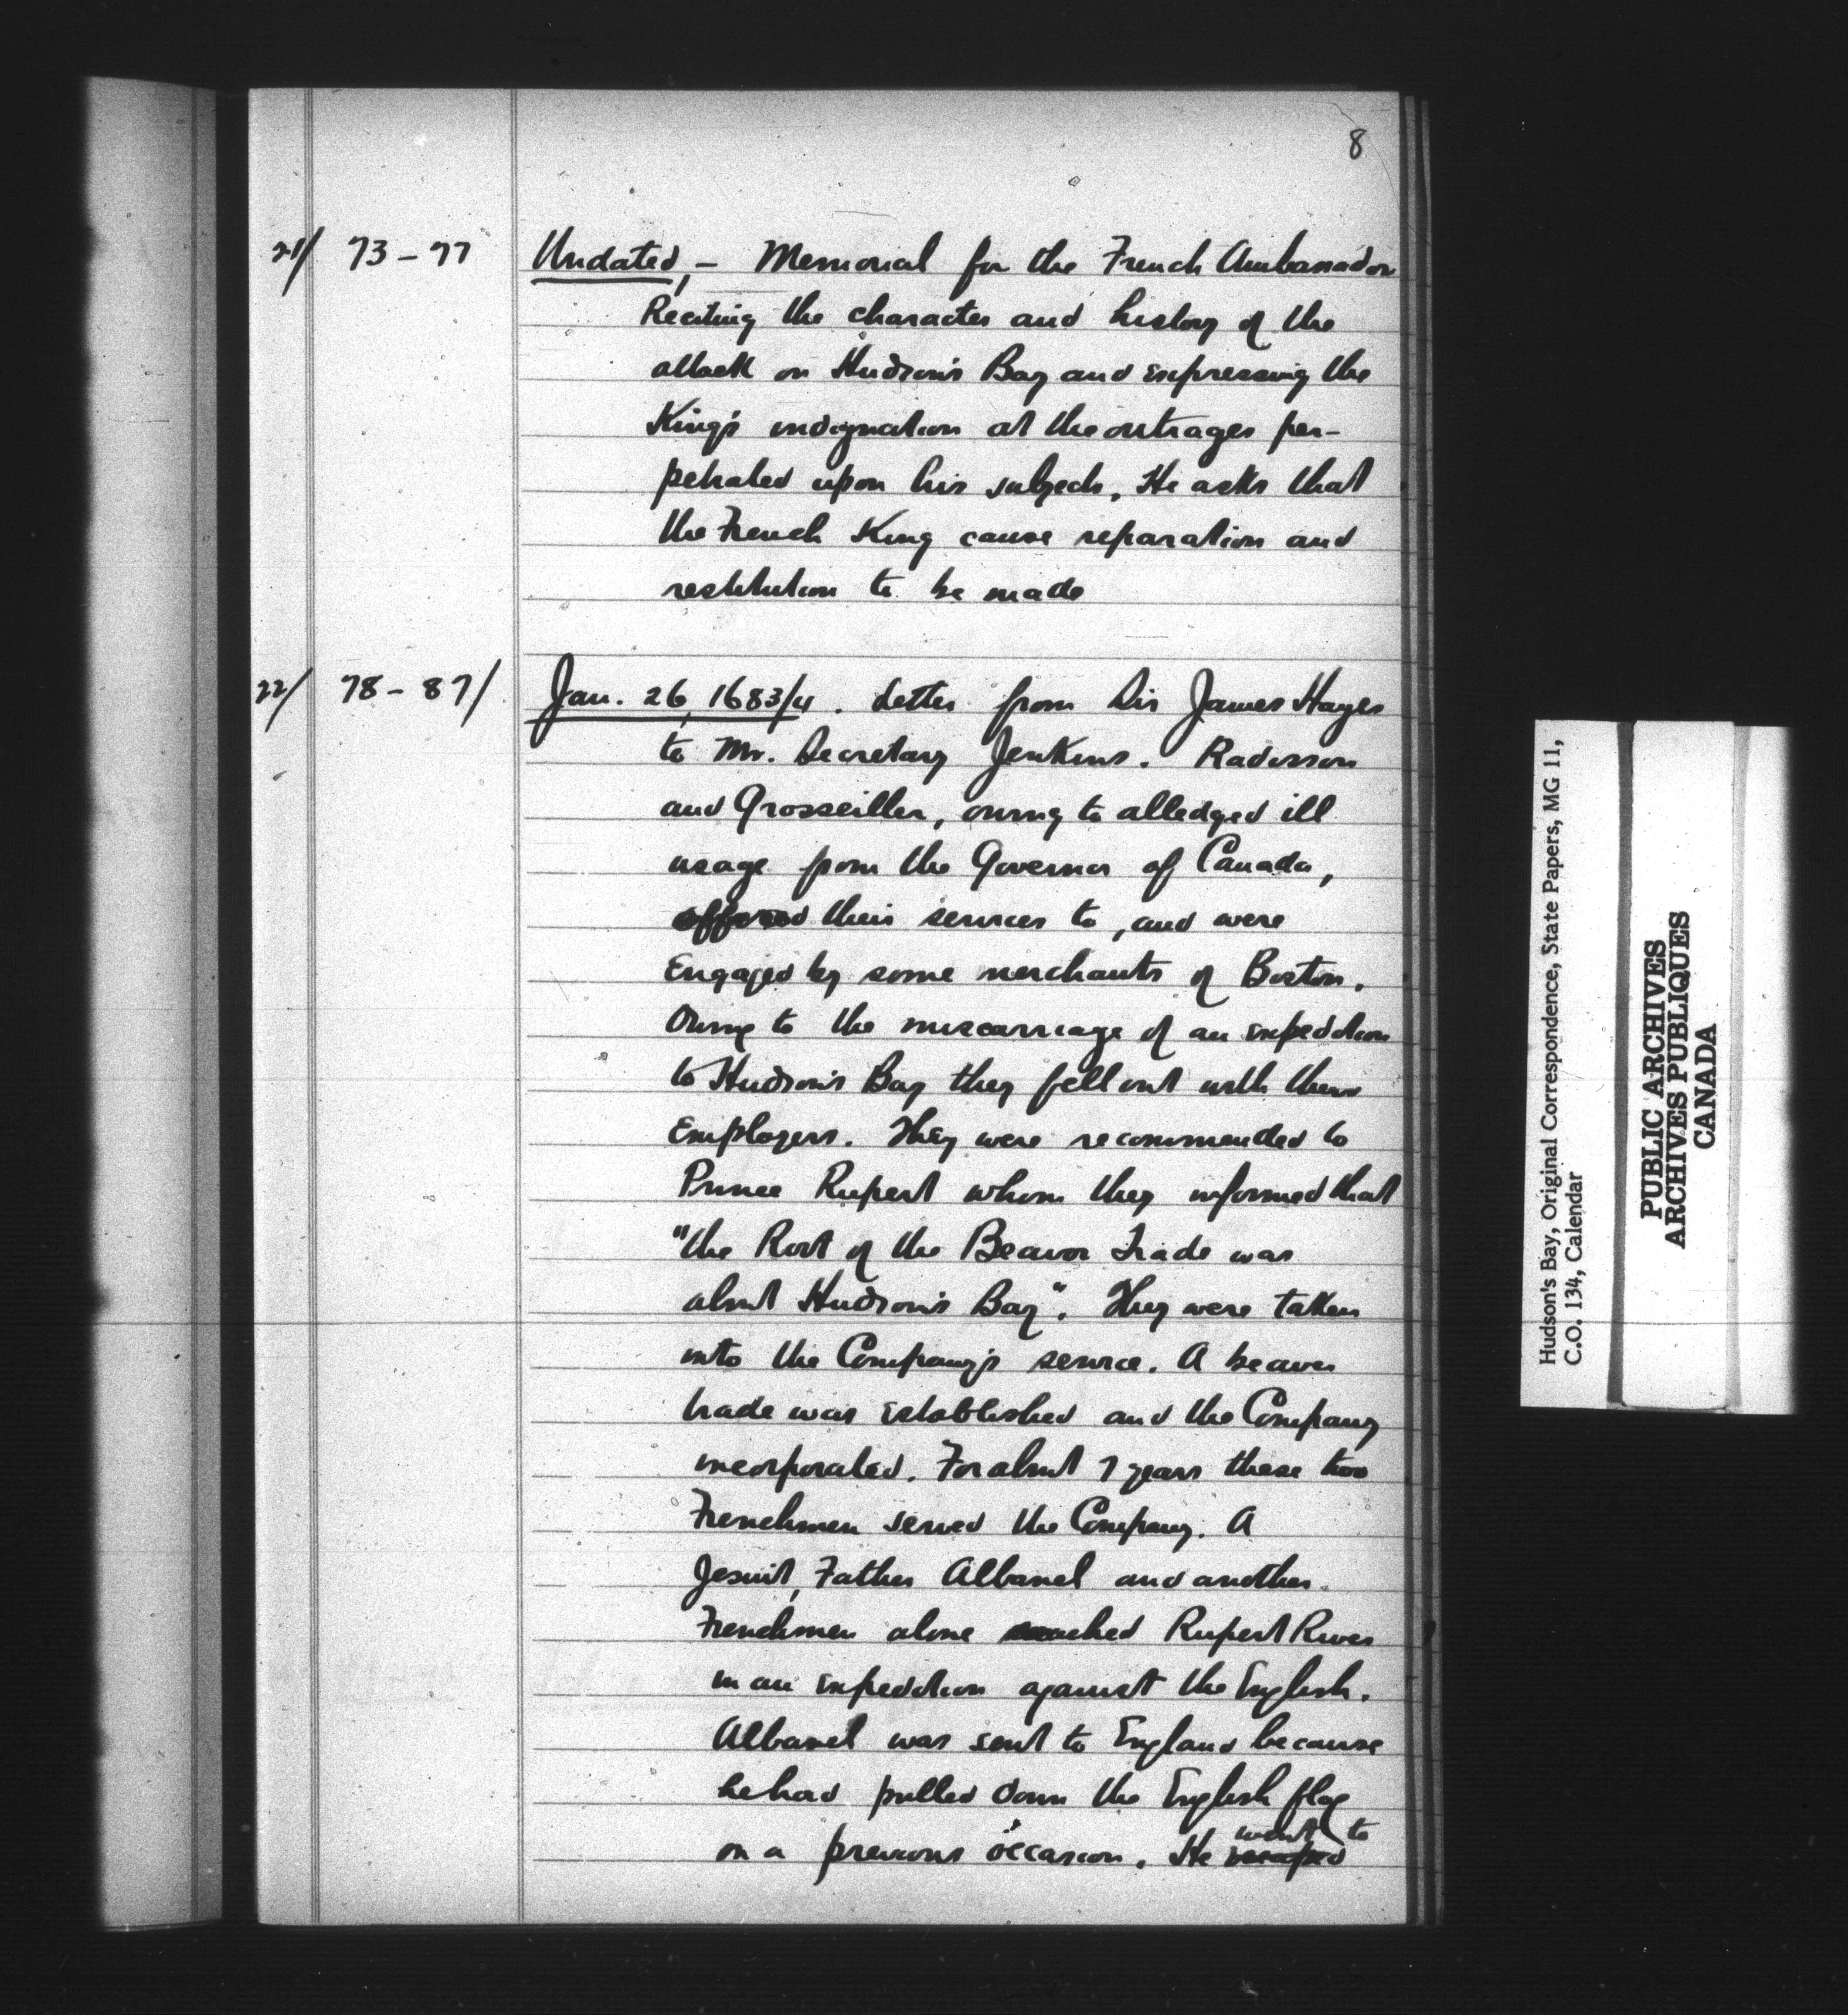 8
21/ 73-77 Undated, - Memorial for the French Ambassador
Reciting the character and history of the
attack on Hudson's Bay and expressing the
King's indignation at the outrages per-
petrated upon his subjects. He asks that
the French King cause reparation and
restitution to be made
22/ 78-87/ Jan. 26, 1683/4. Letter from Sir James Hayes
to Mr. Secretary Jenkins. Radisson
and Grosseiller, owing to alledged ill
usage from the Governor of Canada,
offered their services to, and were
engaged by some merchants of Boston.
Owing to the miscarriage of an expedition
to Hudson's Bay they fell out with their
employers. They were recommended to
Prince Rupert whom they informed that
"the Root of the Beavor Trade was
about Hudson's Bay". They were taken
into the Company's service. A beaver
trade was established and the Company
incorporated. For about 7 years these two
Frenchmen served the Company. A
Jesuit, Father Albanel and another
Frenchmen alone reached Rupert River
in an expedition against the English.
Albanel was sent to England because
he had pulled down the English flag
on a previous occasion. He went to
Hudson's Bay, Original Correspondence, State Papers, MG 11,
C.O. 134, Calendar
PUBLIC ARCHIVES
ARCHIVES PUBLIQUES
CANADA